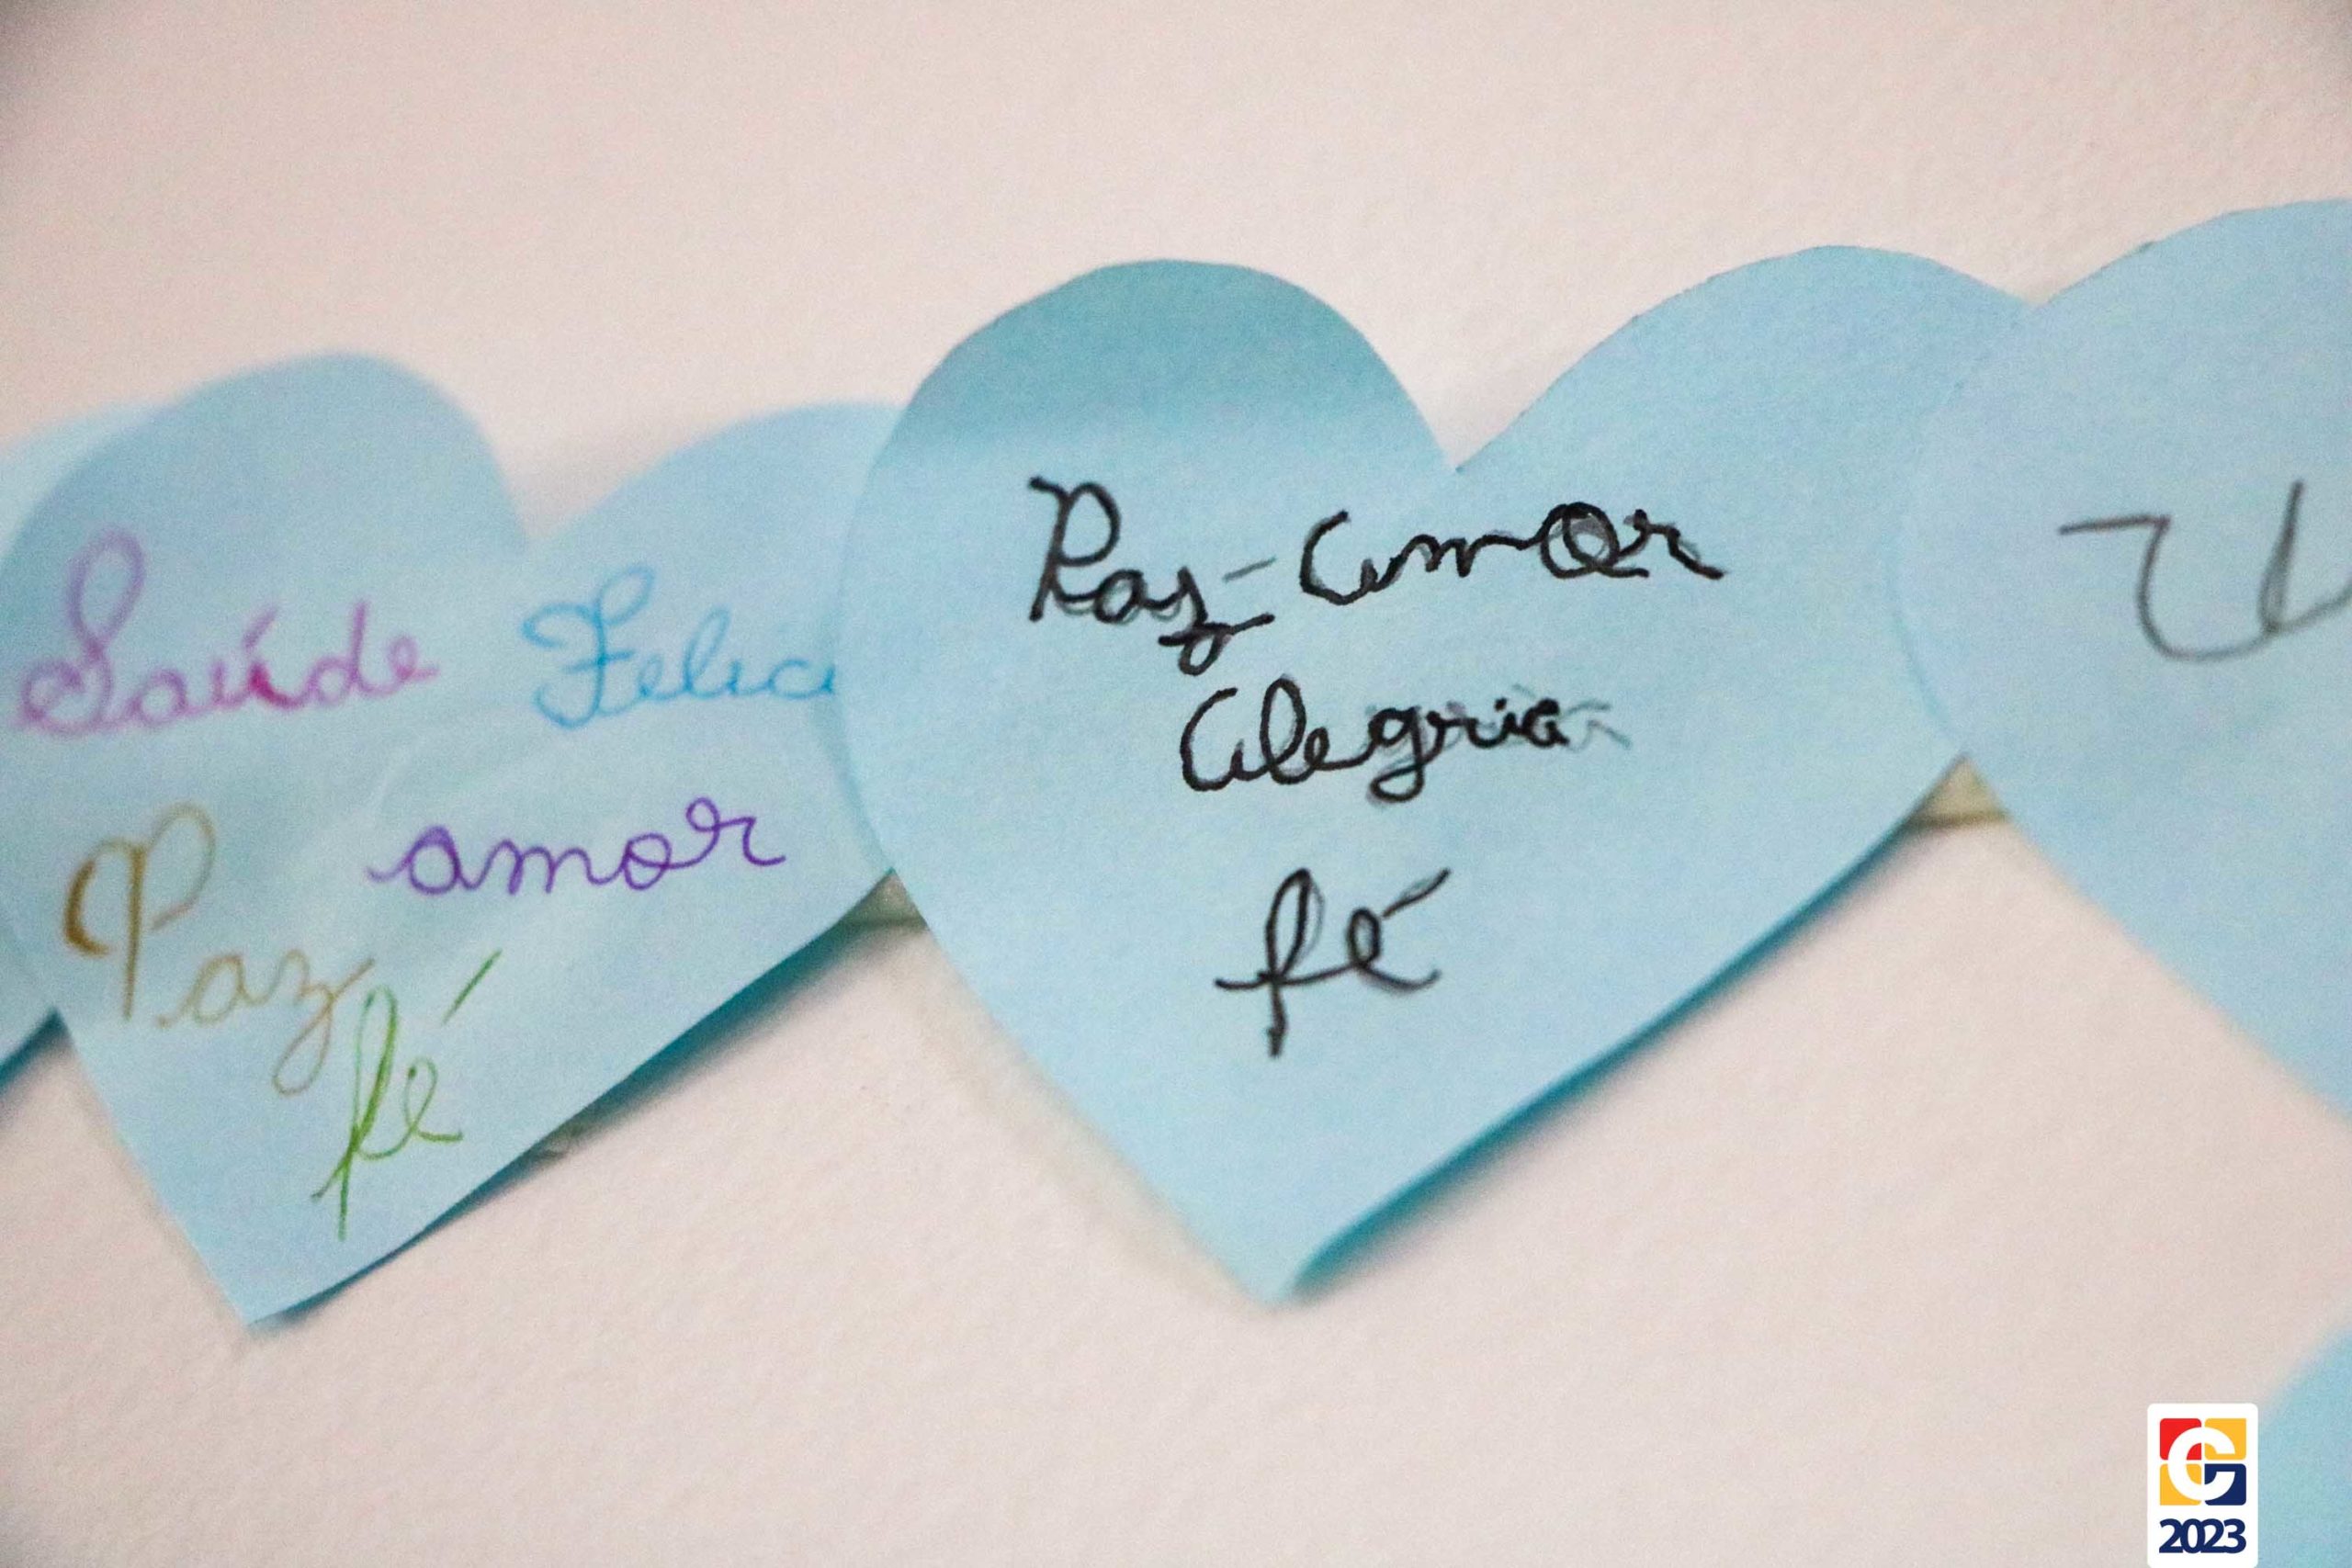 Saúde Felici
Paz amor
fé
Paz-Amor
Alegria
fé
2023